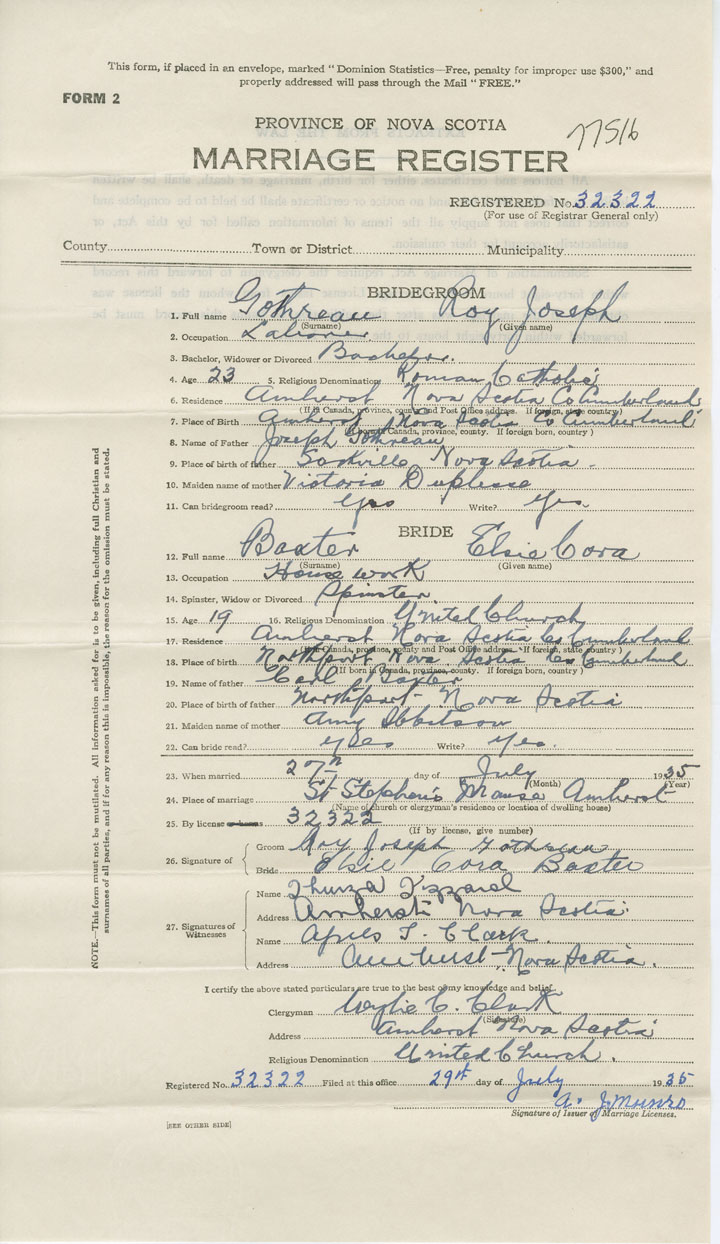 This form, if placed in an envelope, marked "Dominion Statistics—Free, penalty for improper use $300," and
properly addressed will pass through the Mail "FREE."
FORM 2
PROVINCE OF NOVA SCOTIA
77516
MARRIAGE REGISTER
REGISTERED No. 32322
(For use of Registrar General only)
County Town or District Municipality
BRIDEGROOM
1. Full name Gothreau Roy Joseph
(Surname) (Given name)
2. Occupation Laborer
3. Bachelor, Widower or Divorced Bachelor.
4. Age 23 5. Religious Denomination Roman Catholic
6. Residence Amherst Nova Scotia Co Cumberland
(If in Canada, province, county and Post Office address. If foreign, state country)
7. Place of Birth Amherst Nova Scotia Co Cumberland
(If born in Canada, province, county. If foreign born, country)
8. Name of Father Joseph Gothreau
9. Place of birth of father Sackville Nova Scotia.
10. Maiden name of mother Victoria
11. Can bridegroom read? Yes Write? Yes.
BRIDE
12. Full name Baxter Elsie Cora
(Surname) (Given name)
13. Occupation House work
14. Spinster, Widow or Divorced Spinster.
15. Age 19 16. Religious Denomination United Church
17. Residence Amherst Nova Scotia Co Cumberland
(If in Canada, province, county and Post Office address. If foreign, state country)
18. Place of birth Northport Nova Scotia Co Cumberland
(If born in Canada, province, county. If foreign born, country)
19. Name of father Carl Baxter
20. Place of birth of father Northport - Nova Scotia
21. Maiden name of mother Amy Ibbitson
22. Can bride read? Yes Write? Yes.
23. When married 27th day of July 1935
(Month) (Year)
24. Place of marriage St Stephen's Manse Amherst
(Name of church or clergyman's residence or location of dwelling house)
25. By license 32322
(If by license, give number)
26. Signature of
Groom Roy Joseph Gothreau
Bride Elsie Cora Baxter
27. Signatures of Witnesses
Name
Address Amherst Nova Scotia
Name Clark.
Address Amherst - Nova Scotia.
I certify the above stated particulars are true to the best of my knowledge and belief.
Clergyman Wylie C. Clark
(Signature)
Address Amherst Nova Scotia
Religious Denomination United Church.
Registered No. 32322 Filed at this office 29th day of July 1935
A. J. Munro
Signature of Issuer of Marriage Licenses.
[SEE OTHER SIDE]
NOTE.—This form must not be mutilated. All information asked for is to be given, including full Christian and
surnames of all parties, and if for any reason this is impossible, the reason for the omission must be stated.